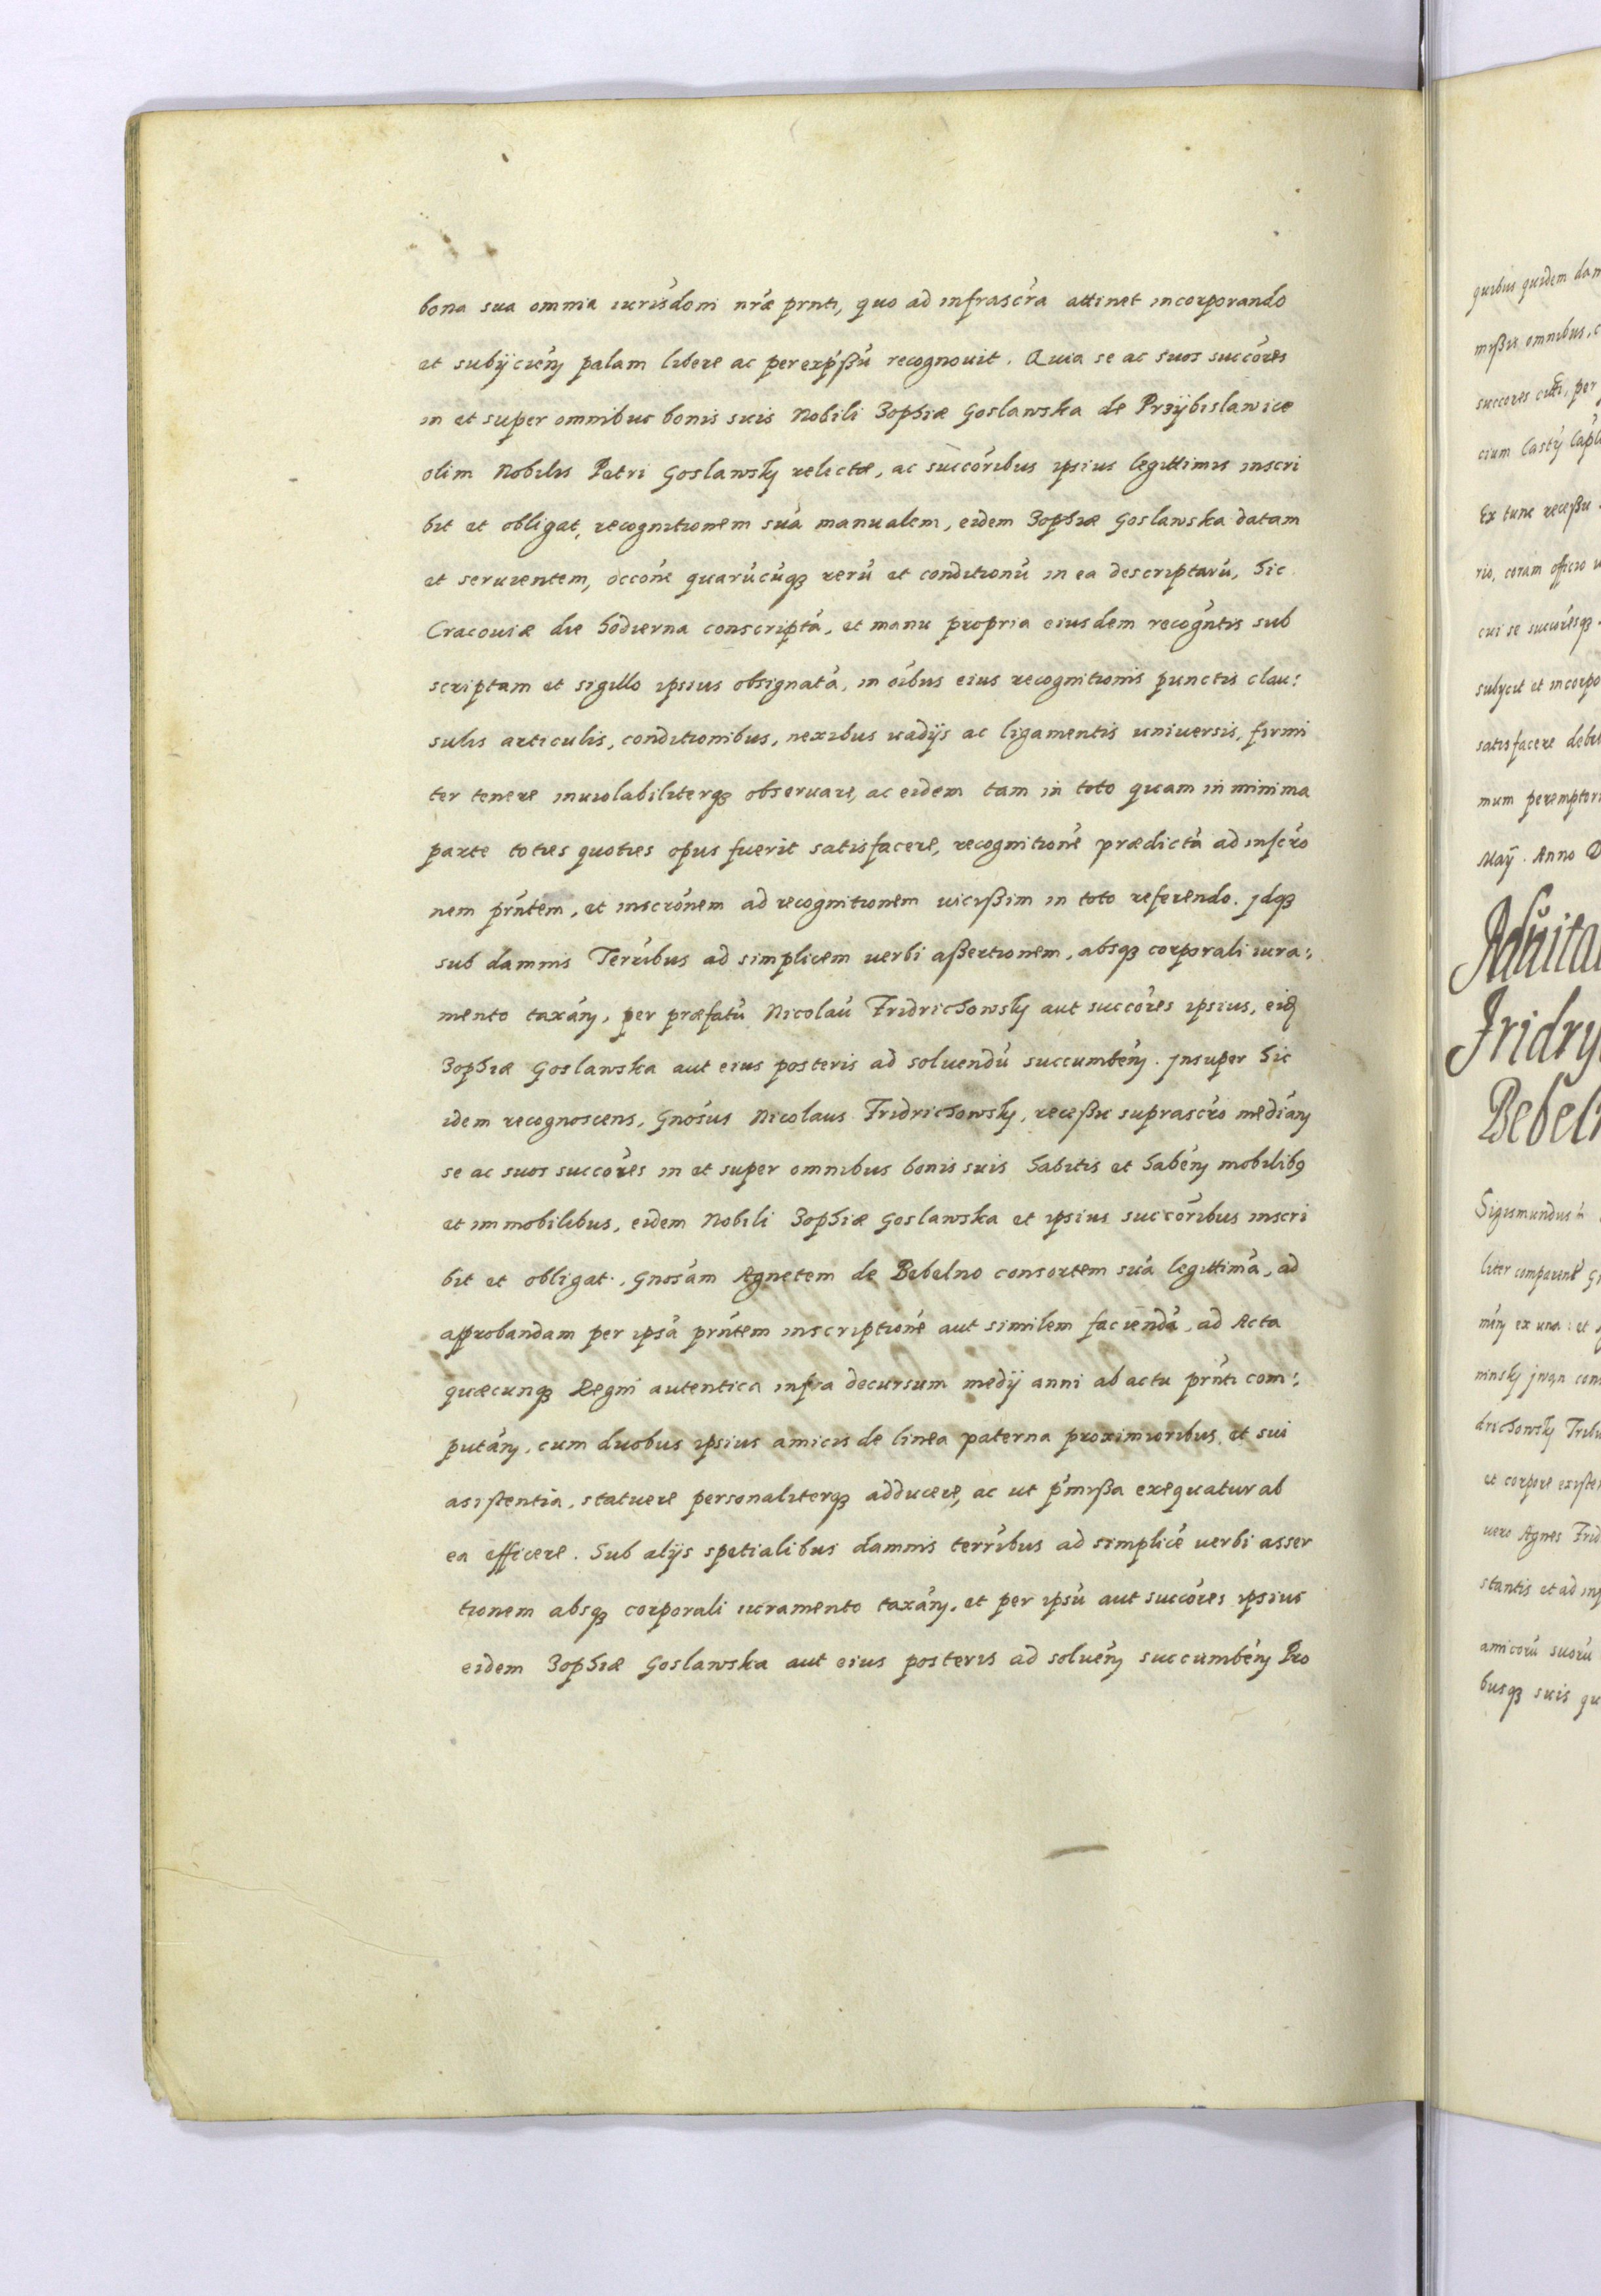 bona sua omnia iurisdoni nræ prnti, quo ad infrascra attinet incorporando
et subijcien palam libere ac per expßu recognouit. Quia se ac suos succores
in et super omnibus bonis suis Nobili Zophiæ Goslawska de Przÿbislawice
olim Nobilis Petri Goslawskÿ relictæ, ac succoribus ipsius legittimis inscri
bit et obligat, recognitionem suã manualem, eidem Zophiæ Goslawska datam
et seruientem, occõne quarũcũqz rerũ et conditionũ in ea descriptarũ, hic
Cracouiæ die hodierna conscriptã, et manu propria eiusdem recogntis sub
scriptam et sigillo ipsius obsignatã, in oĩbus eius recognitionis punctis clau:
sulis articulis, conditionibus, nexibus uadijs ac ligamentis uniuersis, firmi
ter tenere inuiolabiliterqz obseruare, ac eidem tam in toto quam in minima
parte toties quoties opus fuerit satisfacere, recognitionẽ prædictã ad inscro
nem prñtem, et inscronem ad recognitionem uicißim in toto referendo. Jdqz
sub damnis Terribus ad simplicem uerbi aßertionem, absqz corporali iura:
mento taxan, per præfatũ Nicolaũ Fridrichowskÿ aut succores ipsius, eid
Zophiæ Goslawska aut eius posteris ad soluendũ succumben. Jnsuper hic
idem recognoscens, Gnosus Nicolaus Fridrichowskÿ, receßu suprascro median
se ac suos succores in et super omnibus bonis suis habitis et haben mobilibq
et immobilibus, eidem Nobili Zophiæ Goslawska et ipsius succoribus inscri
bit et obligat. Gnosam Agnetem de Bebelno consortem suã legittimã, ad
approbandam per ipsã prñtem inscriptionẽ aut similem faciendã, ad Acta
quæcunqz Regni autentica infra decursum medij anni ab actu prñti com:
putan, cum duobus ipsius amicis de linea paterna proximioribus, et sui
asistentia, statuere personaliterqz adducere, ac ut pmißa exequatur ab
ea efficere. Sub alijs spetialibus damnis terribus ad simplicẽ uerbi asser
tionem absqz corporali iuramento taxan, et per ipsũ aut succores ipsius
eidem Zophiæ Goslawska aut eius posteris ad soluen succumben Pro
quibus quidem
mißis omnibus,
per
Ex tunc receßu
rio, coram officio
cui se succoresqz
subycit et
satisfacere
mum
Maÿ. Anno
Sigismundus
liter
ex una: et
et corpore
uero Agnes
stantis et ad
amicorũ suorũ
busqz suis